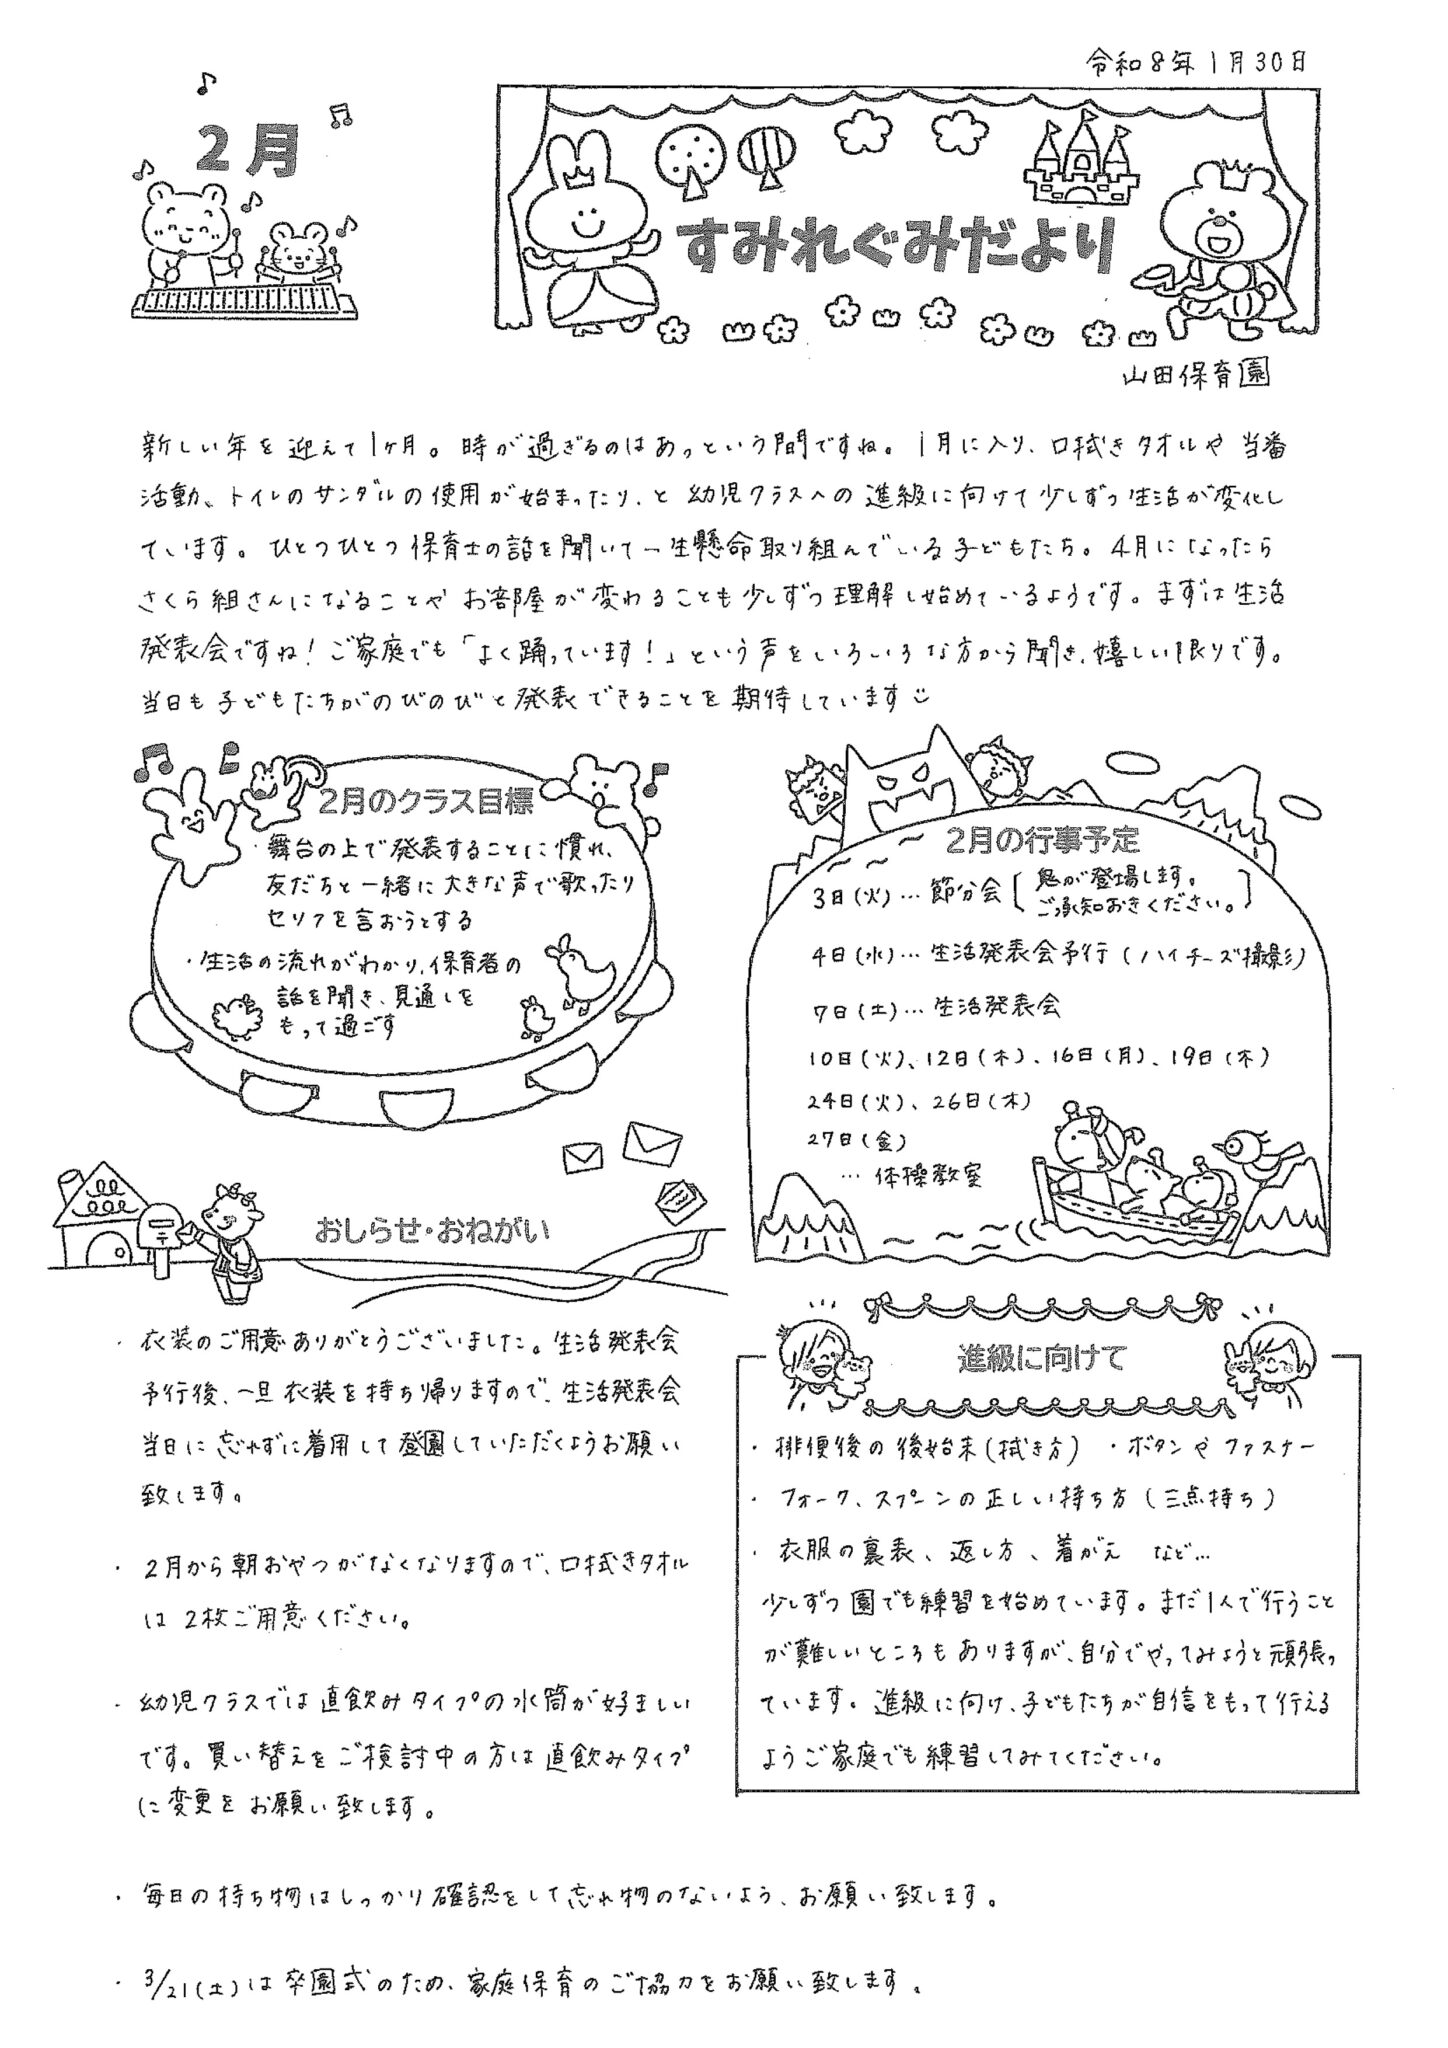 令和8年1月30日
2月
すみれぐみだより
山田保育園
新しい年を迎えて1ヶ月。時が過ぎるのはあっという間ですね。1月に入り、口拭きタオルや当番
活動、トイレのサンダルの使用が始まったり、と幼児クラスへの進級に向けて少しずつ生活が変化し
ています。ひとつひとつ保育士の話を聞いて一生懸命取り組んでいる子どもたち。4月になったら
さくら組さんになることやお部屋が変わることも少しずつ理解し始めているようです。まずは生活
発表会ですね!ご家庭でも「よく踊っています!」という声をいろいろな方から聞き、嬉しい限りです。
当日も子どもたちがのびのびと発表できることを期待しています
2月のクラス目標
・舞台の上で発表することに慣れ、
友だちと一緒に大きな声で歌ったり
セリフを言おうとする
・生活の流れがわかり、保育者の
話を聞き、見通しを
もって過ごす
2月の行事予定
3日(火)…節分会[鬼が登場します。
ご承知おきください。]
4日(水)…生活発表会予行(ハイチーズ撮影)
7日(土)…生活発表会
10日(火)、12日(木)、16日(月)、19日(木)
24日(火)、26日(木)
27日(金)
…体操教室
おしらせ・おねがい
・衣装のご用意ありがとうございました。生活発表会
予行後、一旦衣装を持ち帰りますので、生活発表会
当日に忘れずに着用して登園していただくようお願い
致します。
・2月から朝おやつがなくなりますので、口拭きタオル
は2枚ご用意ください。
・幼児クラスでは直飲みタイプの水筒が好ましい
です。買い替えをご検討中の方は直飲みタイプ
に変更をお願い致します。
・毎日の持ち物はしっかり確認をして忘れ物のないよう、お願い致します。
・3/21(土)は卒園式のため、家庭保育のご協力をお願い致します。
進級に向けて
・排便後の後始末(拭き方) ・ボタンやファスナー
・フォーク、スプーンの正しい持ち方(三点持ち)
・衣服の裏表、返し方、着がえ など…
少しずつ園でも練習を始めています。まだ1人で行うこと
が難しいところもありますが、自分でやってみようと頑張っ
ています。進級に向け、子どもたちが自信をもって行える
ようご家庭でも練習してみてください。